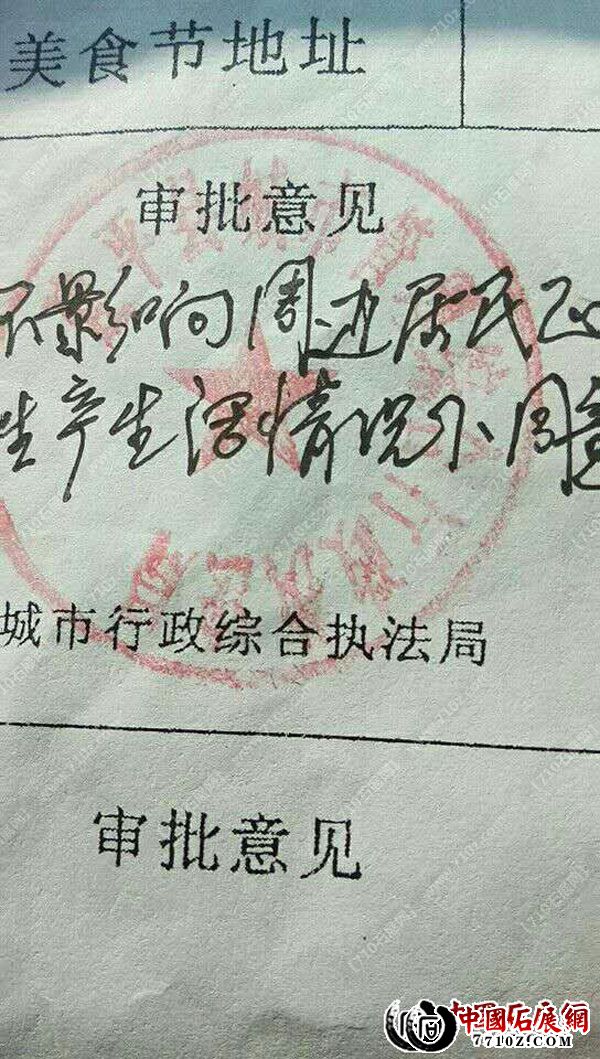 美食节地址
审批意见
不影响周边居民正
生产生活情况下同意
城市行政综合执法局
审批意见
中國石展網
7710Z.COM